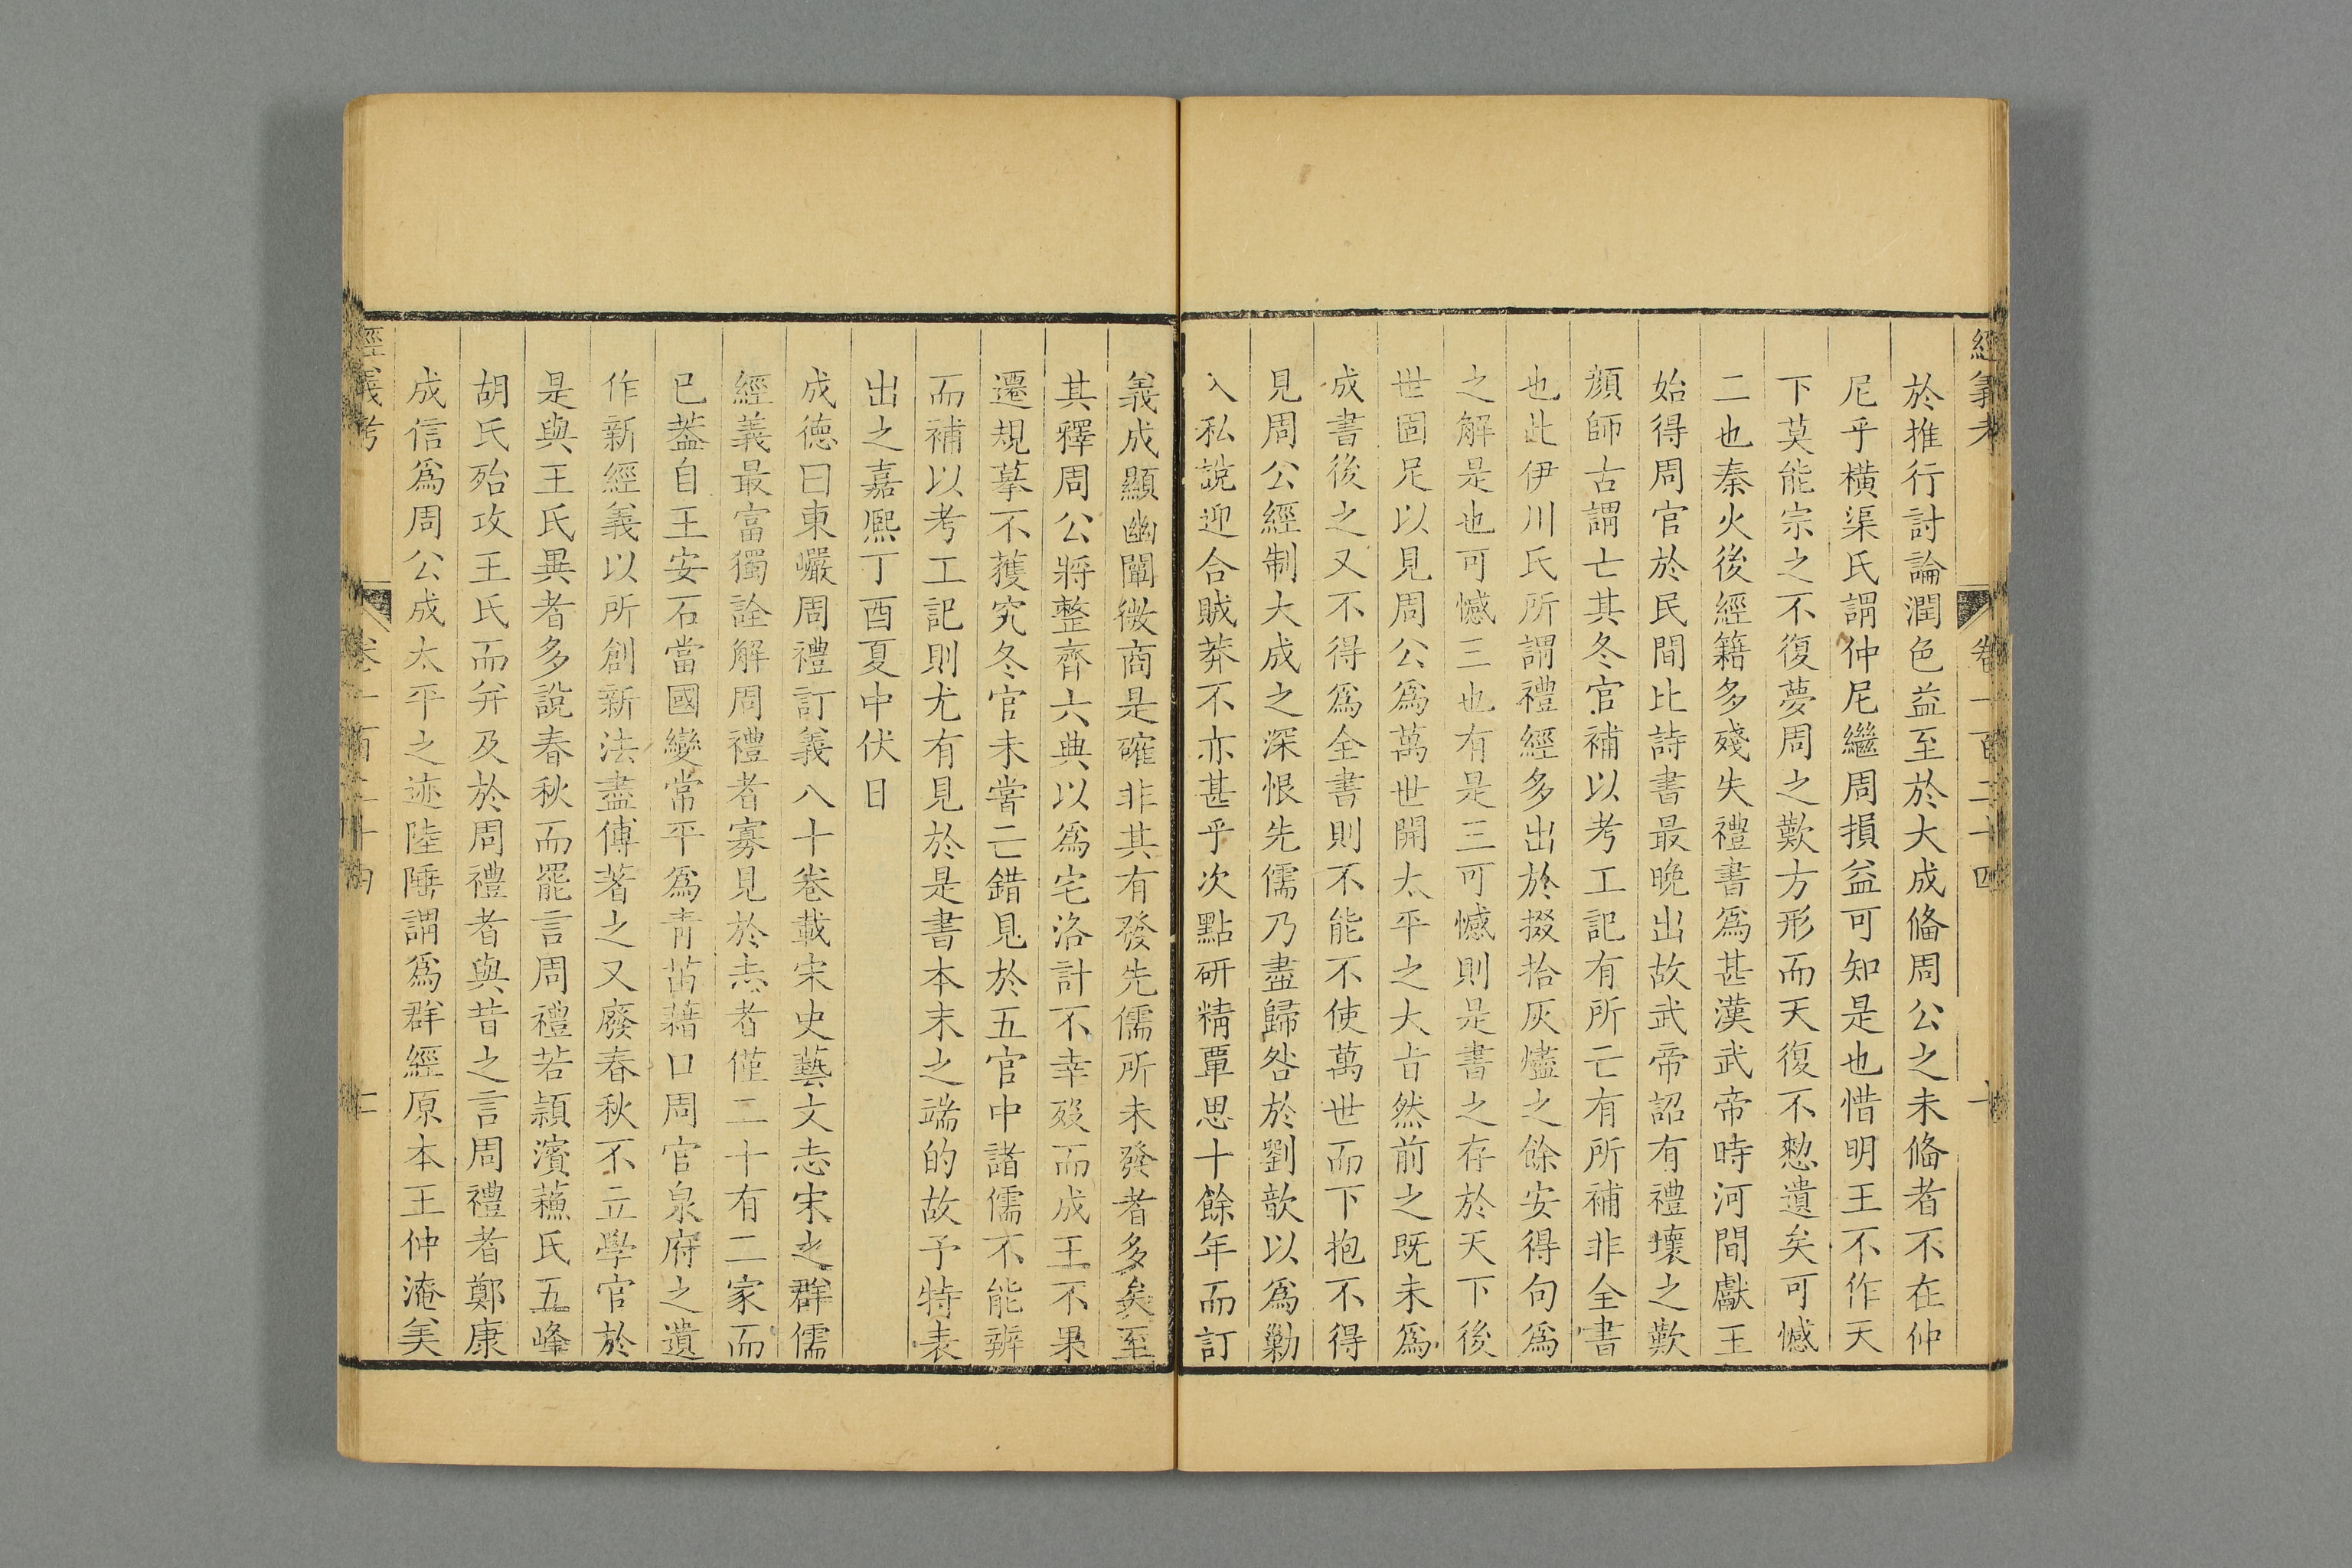 經義考 卷一百二十四 十
於推行討論潤色益至於大成俻周公之未俻者不在仲
尼乎橫渠氏謂仲尼繼周損益可知是也惜明王不作天
下莫能宗之不復夢周之歎方形而天復不憖遺矣可憾
二也秦火後經籍多殘失禮書爲甚漢武帝時河間獻王
始得周官於民間比詩書最晚出故武帝詔有禮壞之歎
顔師古謂亡其冬官補以考工記有所亡有所補非全書
也此伊川氏所謂禮經多出於掇拾灰燼之餘安得句爲
之解是也可憾三也有是三可憾則是書之存於天下後
世固足以見周公爲萬世開太平之大㫖然前之既未爲
成書後之又不得爲全書則不能不使萬世而下抱不得
見周公經制大成之深恨先儒乃盡歸咎於劉歆以爲勦
入私說迎合賊莽不亦甚乎次點硏精覃思十餘年而訂
義成顯幽闡微商是確非其有發先儒所未發者多矣至
其釋周公將整齊六典以爲宅洛計不幸歿而成王不果
遷規摹不獲究冬官未嘗亡錯見於五官中諸儒不能辨
而補以考工記則尤有見於是書本末之端的故予特表
出之嘉熙丁酉夏中伏日
成德曰東巖周禮訂義八十卷載宋史藝文志宋之群儒
經義最富獨詮解周禮者寡見於志者僅二十有二家而
已葢自王安石當國變常平爲靑苗藉口周官泉府之遺
作新經義以所創新法盡傅著之又廢春秋不立學官於
是與王氏異者多說春秋而罷言周禮若潁濱蘇氏五峰
胡氏殆攻王氏而幷及於周禮者與昔之言周禮者鄭康
成信爲周公成太平之迹陸陲謂爲群經原本王仲淹美
經義考 卷一百二十四